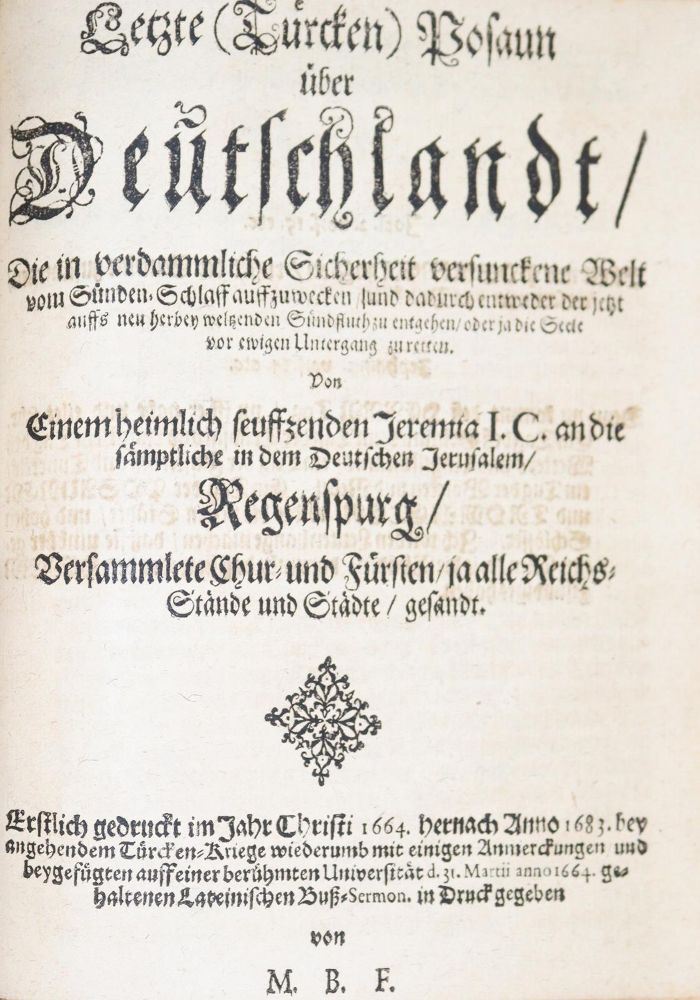 Letzte (Türcken) Posaun
über
Deütschlandt /
Die in verdammliche Sicherheit versunckene Welt
vom Sünden-Schlaff auffzuwecken / und dadurch entweder der jetzt
auffs neu herbey weltzenden Sündfluth zu entgehen / oder ja die Seele
vor ewigen Untergang zu retten.
Von
Einem heimlich seuffzenden Jeremia I. C. an die
sämptliche in dem Deutschen Jerusalem /
Regenspurg /
Versammlete Chur- und Fürsten / ja alle Reichs-
Stände und Städte / gesandt.
Erstlich gedruckt im Jahr Christi 1664. hernach Anno 1683. bey
angehendem Türcken-Kriege wiederumb mit einigen Anmerckungen und
beygefügten auff einer berühmten Universität d. 31. Martii anno 1664. ge-
haltenen Lateinischen Buß-Sermon. in Druck gegeben
von
M. B. F.